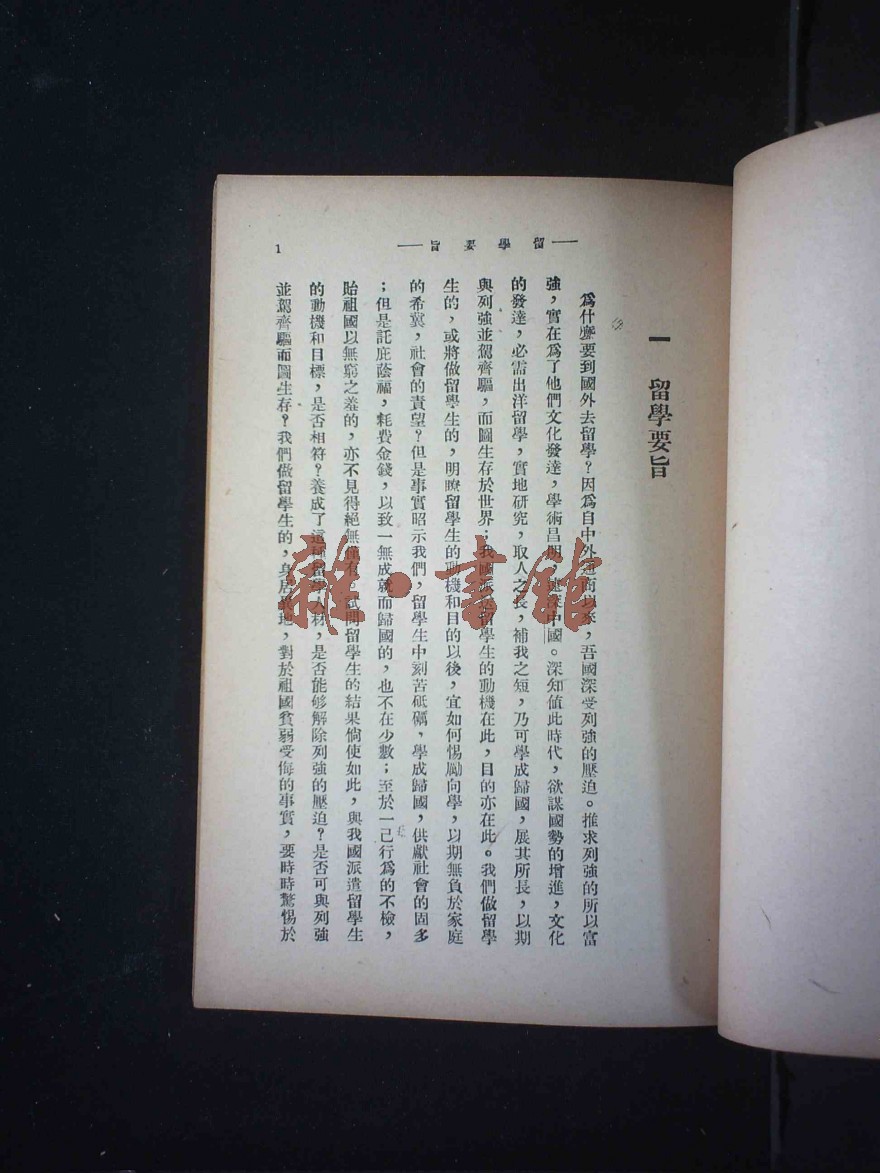 一 留學要旨
爲什麽要到國外去留學？因爲自中外通商以來，吾國深受列強的壓迫。推求列強的所以富
強，實在爲了他們文化發達，學術昌明，遠深中國。深知値此時代，欲謀國勢的增進，文化
的發達，必需出洋留學，實地研究，取人之長，補我之短，乃可學成歸國，展其所長，以期
與列強並駕齊驅，而圖生存於世界；我國派遣留學生的動機在此，目的亦在此。我們做留學
生的，或將做留學生的，明瞭留學生的動機和目的以後，宜如何惕勵向學，以期無負於家庭
的希冀，社會的責望？但是事實昭示我們，留學生中刻苦砥礪，學成歸國，供獻社會的固多
；但是託庇蔭福，耗費金錢，以致一無成就而歸國的，也不在少數；至於一己行爲的不檢，
貽祖國以無窮之羞的，亦不見得絕無僅有。試問留學生的結果倘使如此，與我國派遣留學生
的動機和目標，是否相符？養成了這種留學人材，是否能够解除列強的壓迫？是否可與列強
並駕齊驅而圖生存？我們做留學生的，身居我地，對於祖國貧弱受侮的事實，要時時驚惕於
留學要旨
1
雜·書館